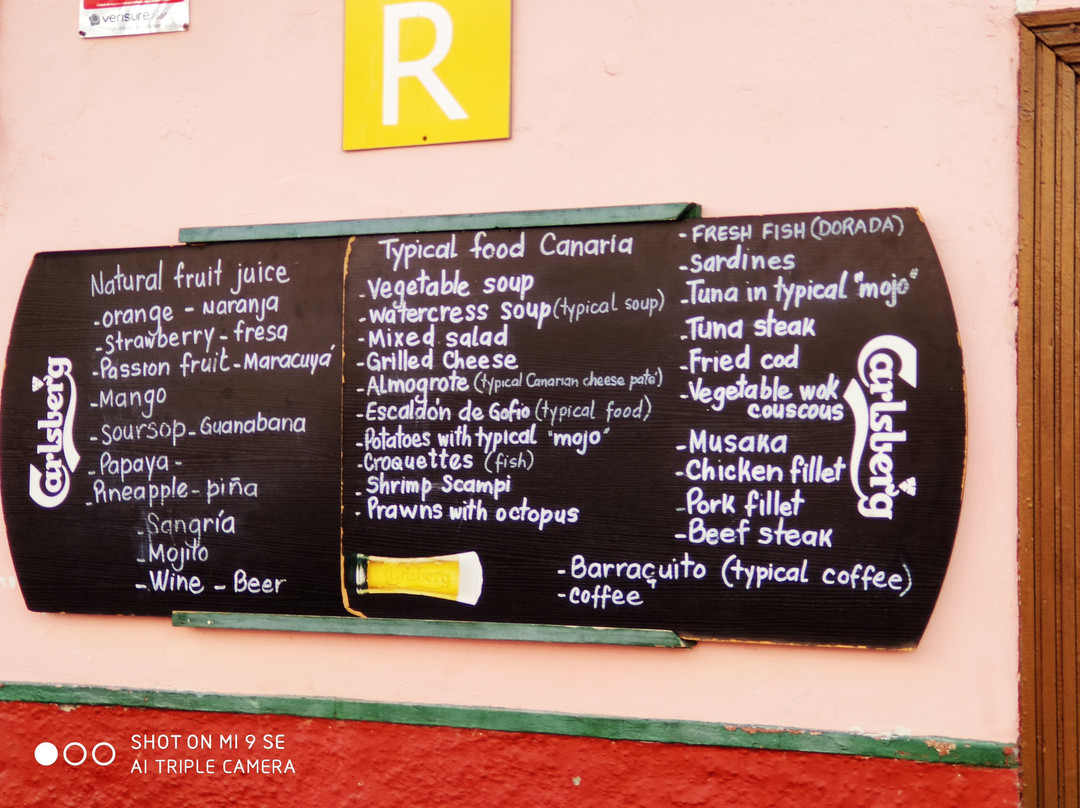 verisure
R
Natural fruit juice
-orange - Naranja
-Strawberry - fresa
-Passion fruit - Maracuyá
-Mango
-Soursop - Guanabana
-Papaya -
-Pineapple - piña
-Sangría
-Mojito
-Wine - Beer
Carlsberg
Typical food Canaria
-Vegetable soup
-watercress soup (typical soup)
-Mixed salad
-Grilled Cheese
-Almogrote (typical Canarian cheese paté)
-Escaldón de Gofio (typical food)
-Potatoes with typical "mojo"
-Croquettes (fish)
-Shrimp Scampi
-Prawns with octopus
Carlsberg
-FRESH FISH (DORADA)
-Sardines
-Tuna in typical "mojo"
-Tuna steak
-Fried cod
-Vegetable wok
couscous
-Musaka
-Chicken fillet
-Pork fillet
-Beef steak
-Barraquito (typical coffee)
-coffee
Carlsberg
SHOT ON MI 9 SE
AI TRIPLE CAMERA